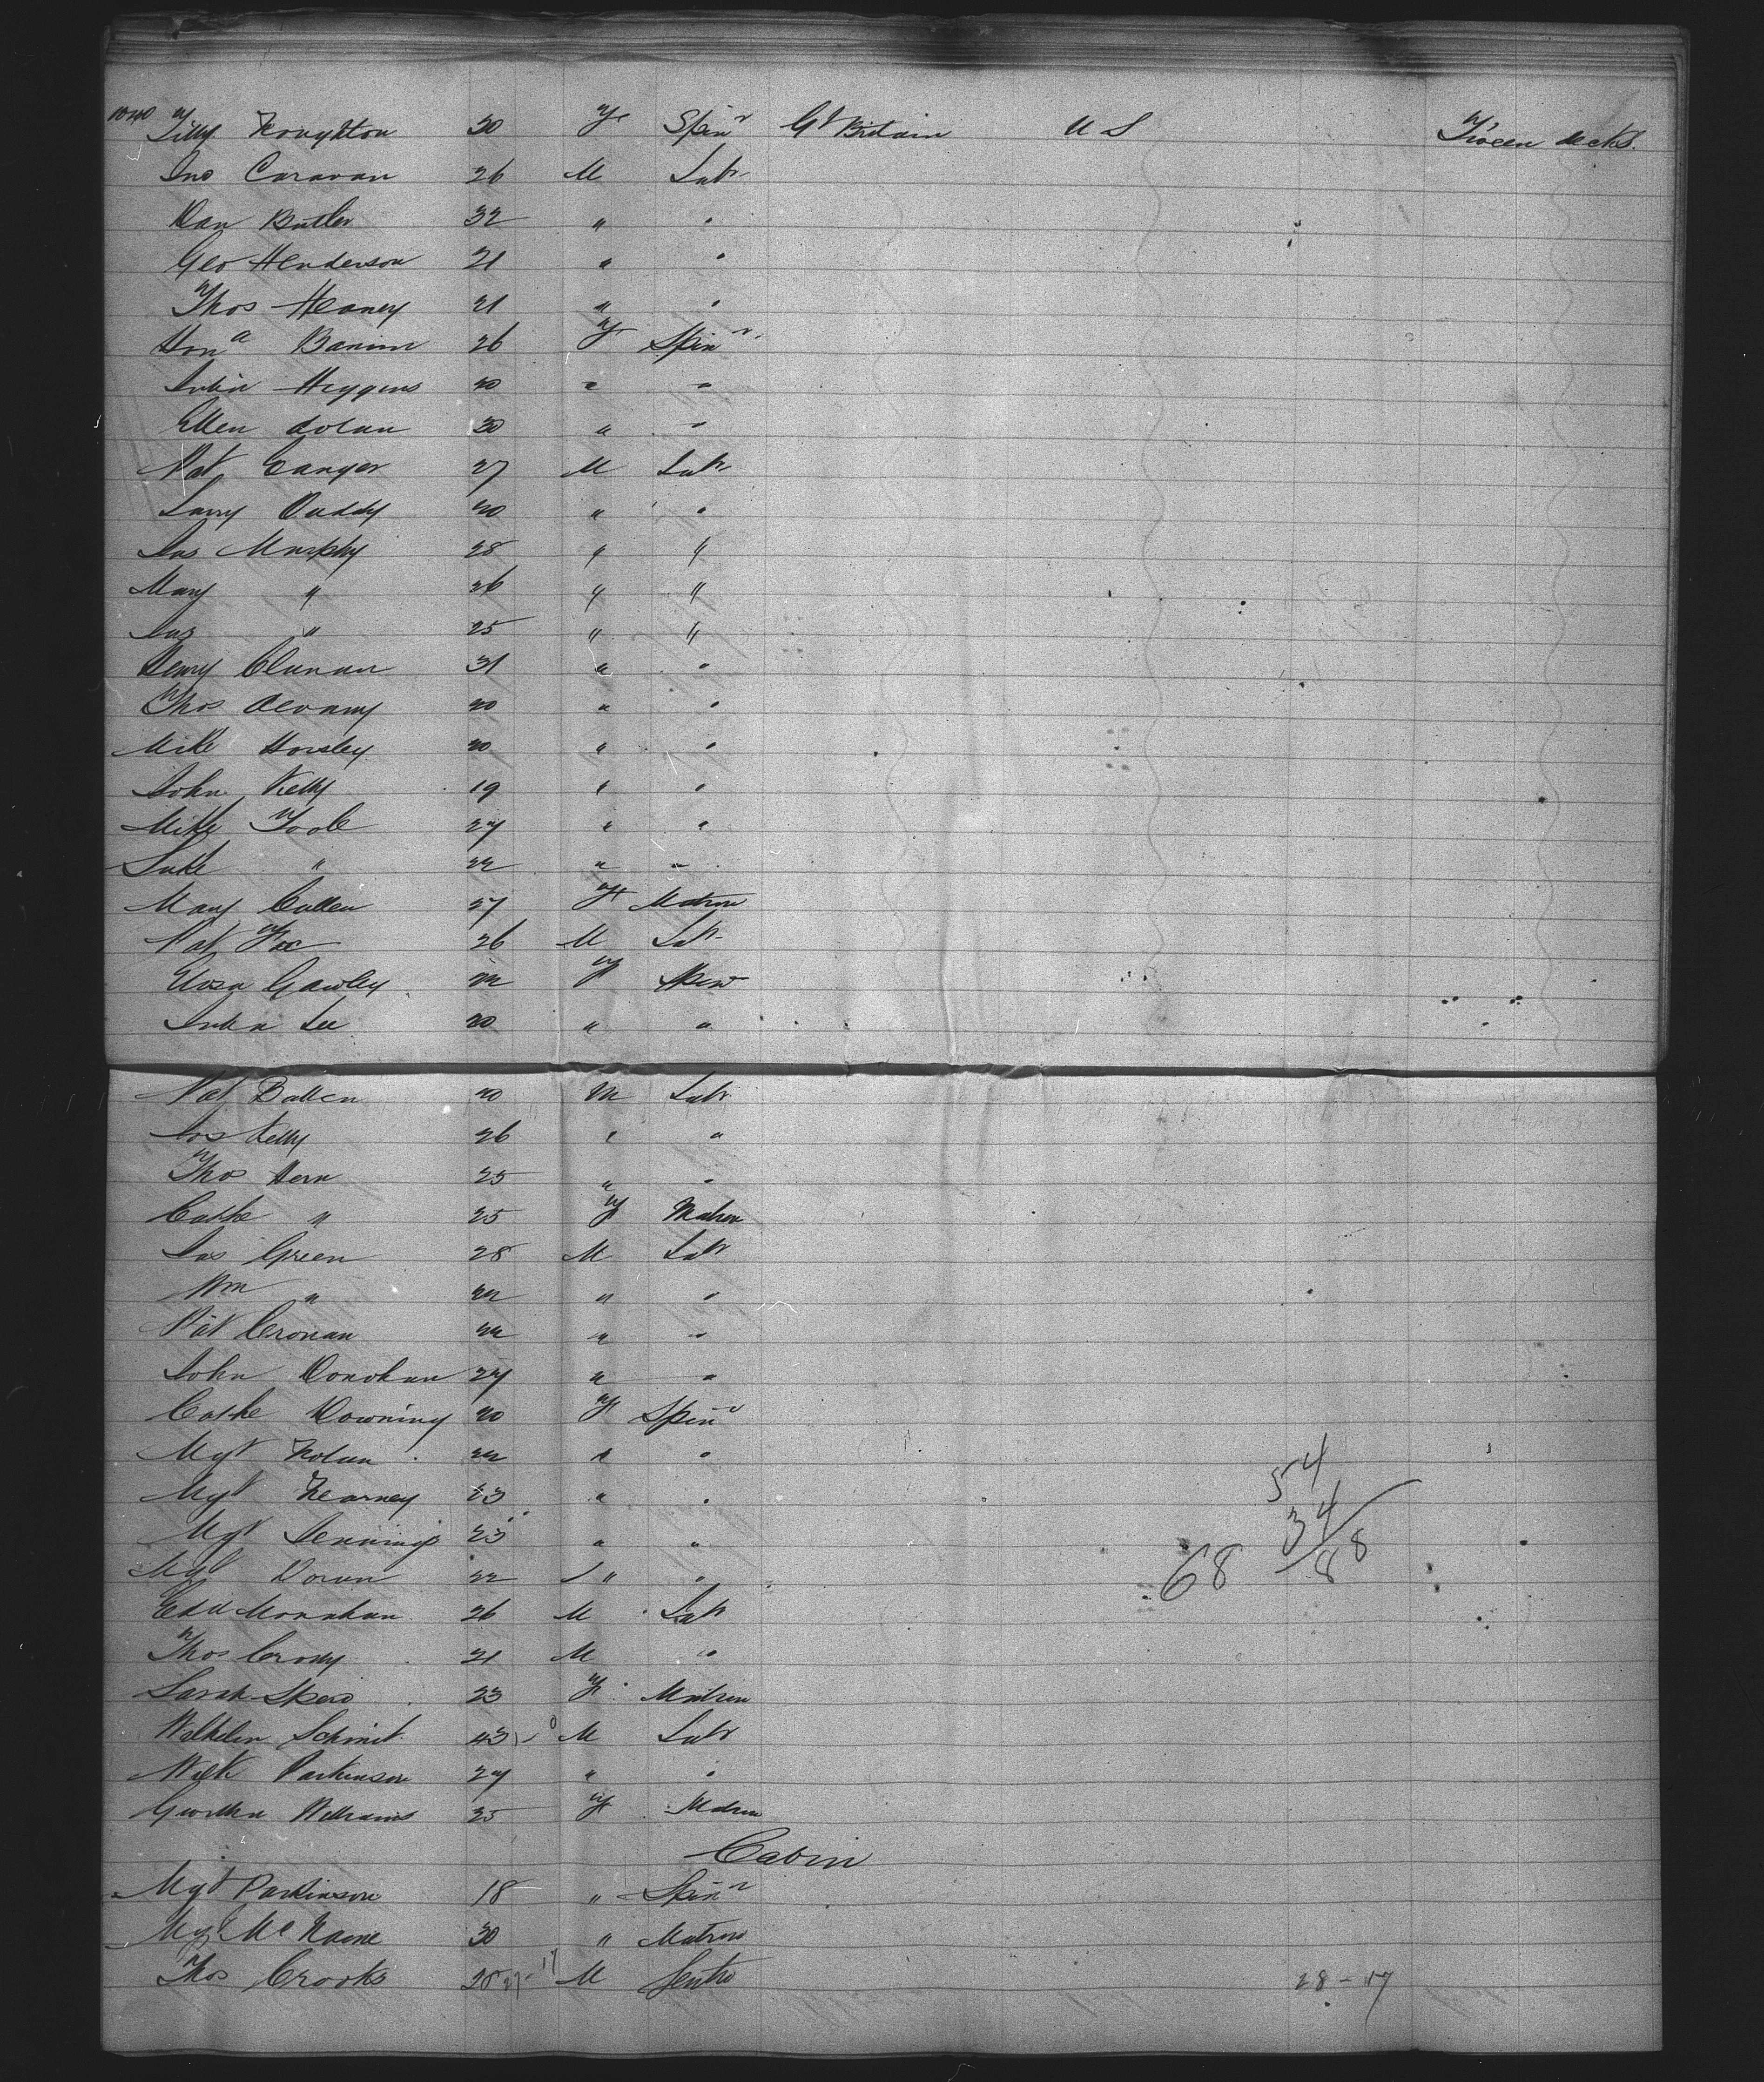 1040 Tilly Noughton 30 F Spinr Gt Britain U S T'ween decks.
Jno Caravan 26 M Labr
Dan Butler 32 " "
Geo Henderson 21 " "
Thos Heaney 21 " "
Hona Banim 26 F Spinr
Julia Higgens 20 " "
Ellen Dolan 30 " "
Pat Canyer 27 M Labr
Larry Duddy 20 " "
Jas Murphy 28 " "
Mary " 26 " "
Jas " 25 " "
Henry Clunan 31 " "
Thos Devany 20 " "
Mike Horsley 20 " "
John Kelly 19 " "
Mike Toole 27 " "
Luke " 22 " "
Mary Cullen 27 F Matron
Pat Fox 26 M Labr
Eliza Gawley 22 F Spinr
Julia Lee 20 " "
Pat Batten 20 M Labr
Jos Kelly 26 " "
Thos Hern 25 " "
Cathe " 25 F Matron
Jas Green 28 M Labr
Wm " 22 " "
Pat Cronan 22 " "
John Donohue 27 " "
Cathe Downing 20 F Spinr
Mgt Nolan 22 " "
Mgt Kearney 23 " "
Mgt Jennings 23 " "
Mgt Doran 22 " "
Edd Monahan 26 M Labr
Thos Crolly 21 M "
Sarah Spero 23 F Matron
Wilhelm Schmit 43 M Labr
Parkinson 27 " "
Williams 25 F Matron
54
34
88
68
Cabin
Mgt Parkinson 18 " Spinr
Mgt Mc 30 " Matron
Thos Crooks 28 M Gentn 28 - 17